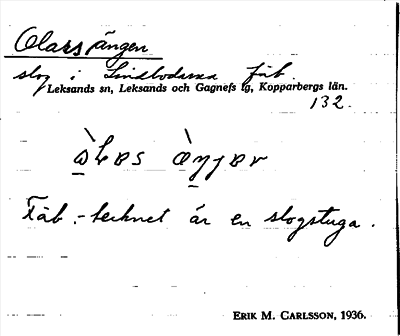 Olarsängen
slog i Lindbodarna fäb.
Leksands sn, Leksands och Gagnefs tg, Kopparbergs län.
132.
Fäb.-tecknet är en slogstuga.
ERIK M. CARLSSON, 1936.